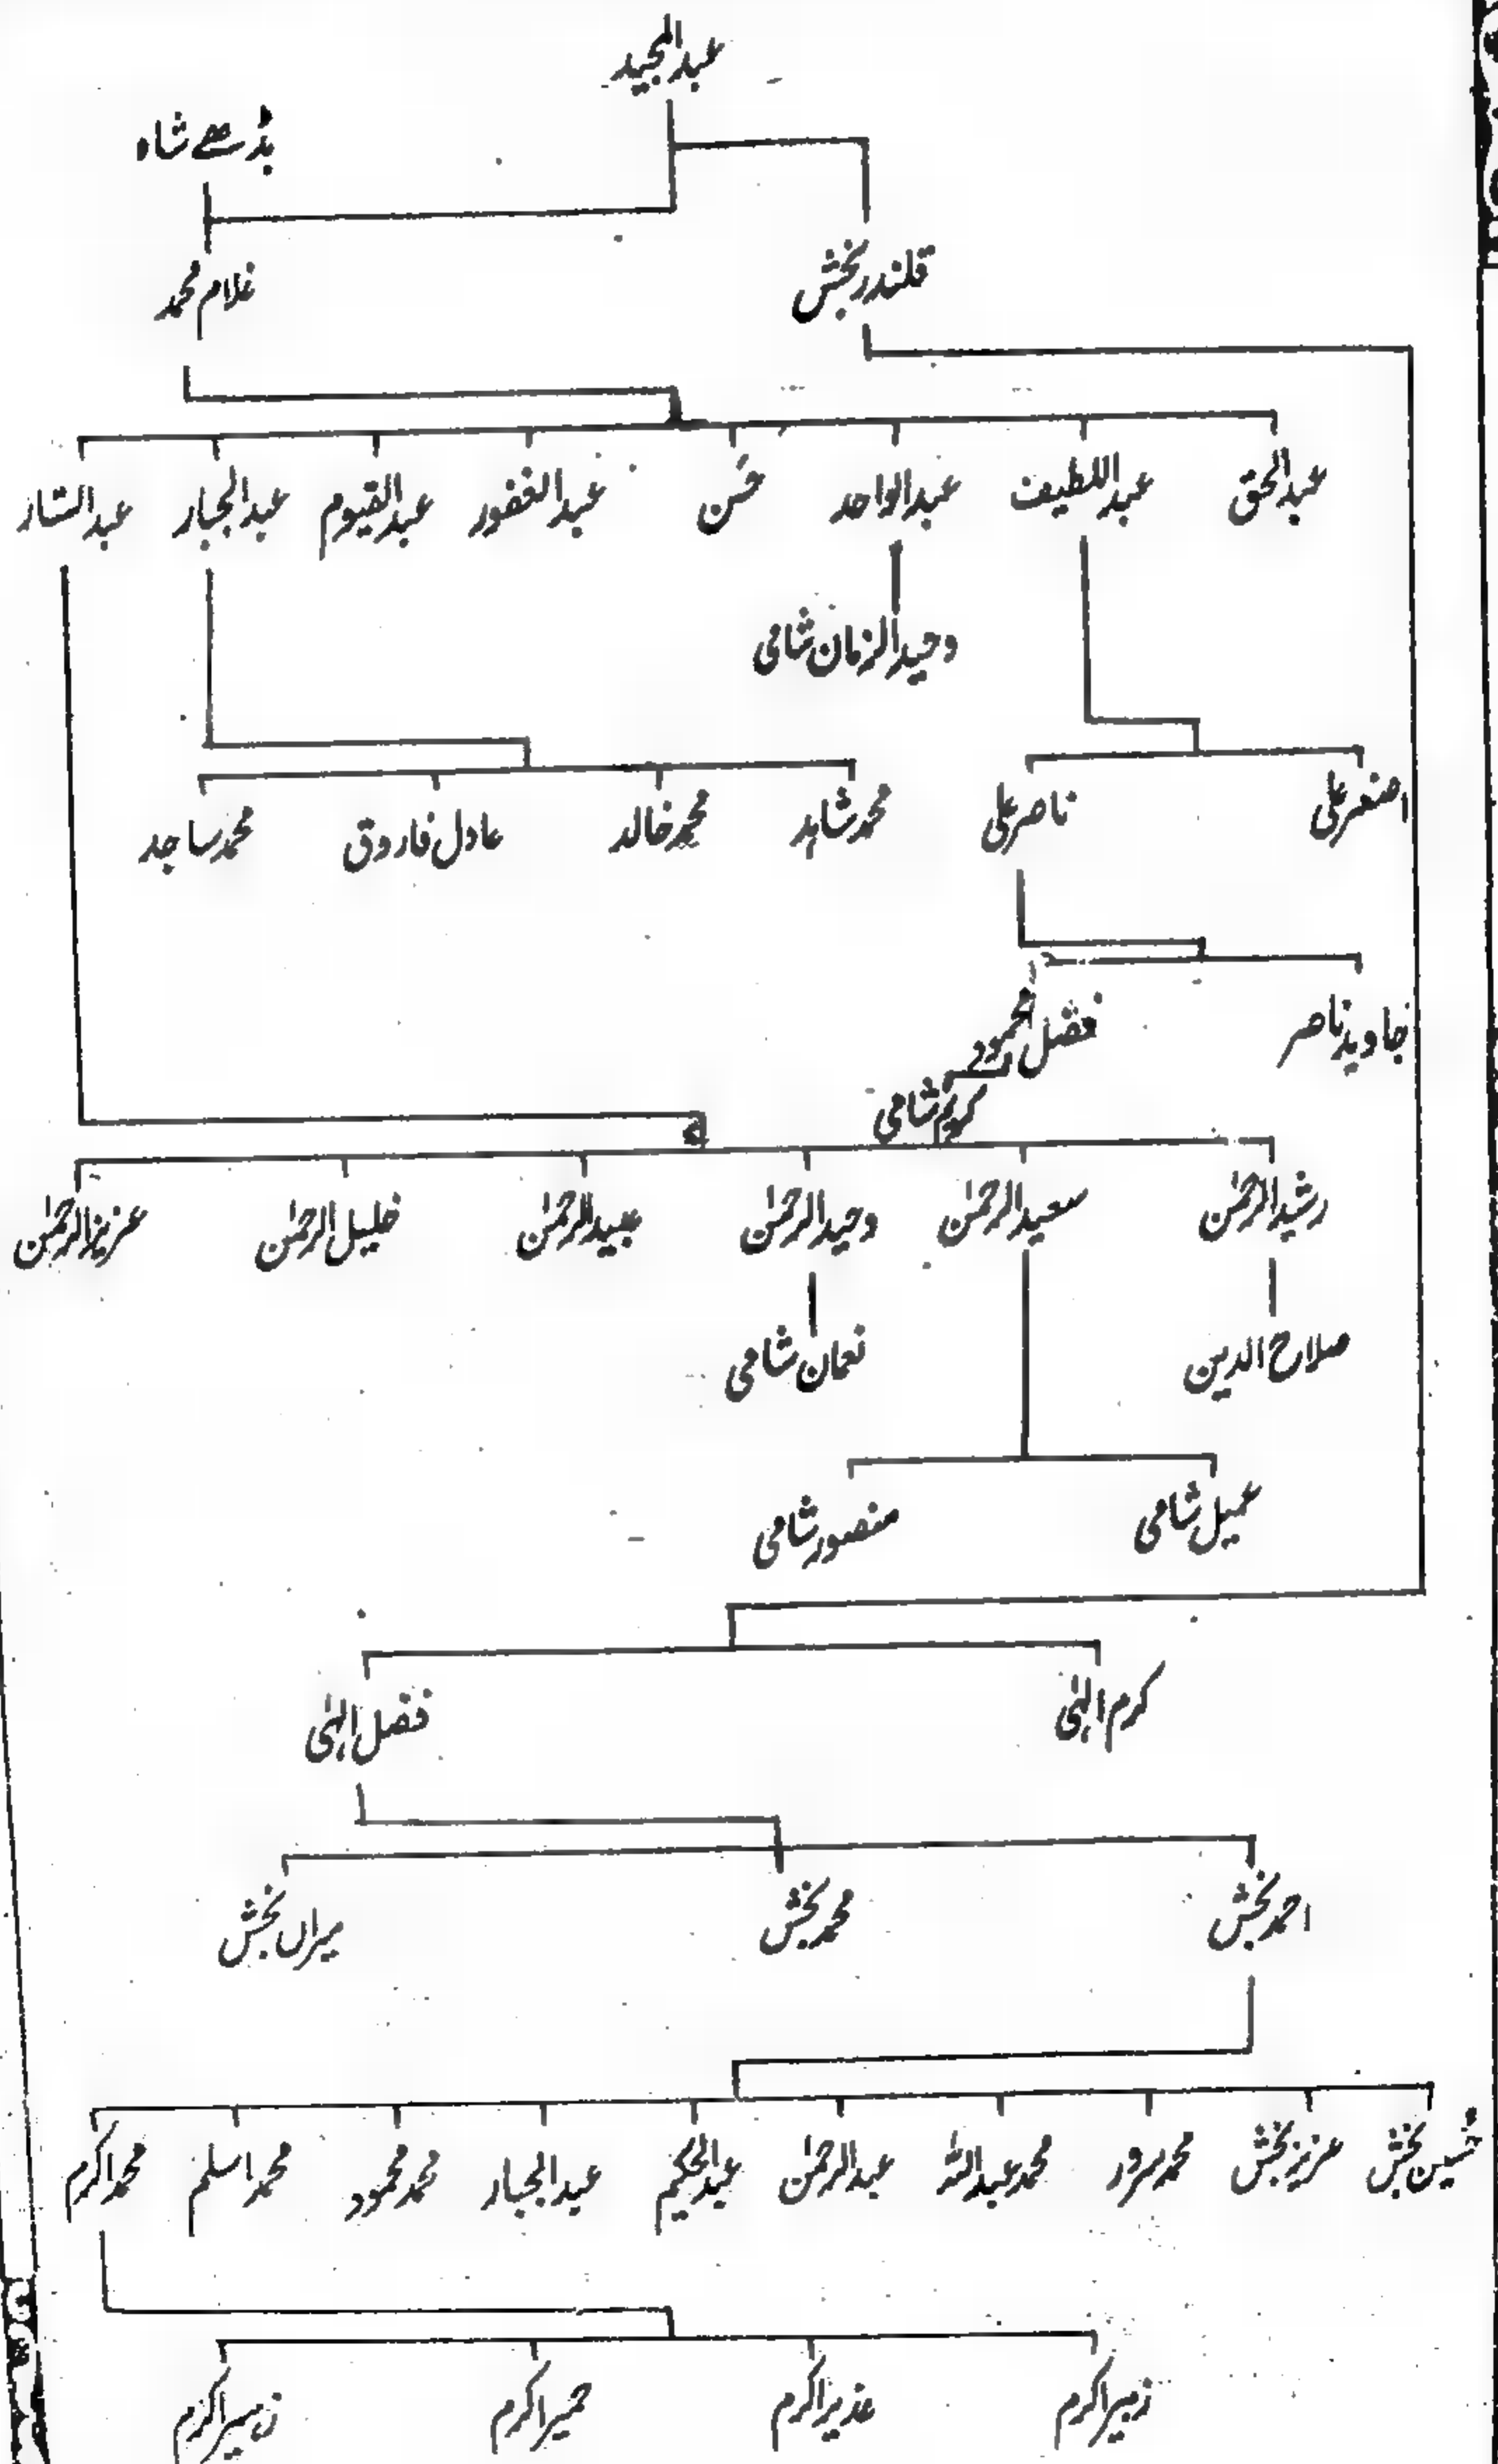 عبدالمجید
بڈھے شاہ
قلندر بخش
غلام محمد
عبدالحق
عبداللطیف
عبدالواحد
حسن
عبدالغفور
عبدالقیوم
عبدالجبار
عبدالستار
وحیدالزمان شامی
اصغر علی
ناصر علی
محمد شاہد
محمد خالد
عادل فاروق
محمد ساجد
جاوید ناصر
فضل محمود
کریم شامی
رشیدالرحمٰن
سعیدالرحمٰن
وحیدالرحمٰن
عبیدالرحمٰن
خلیل الرحمٰن
عزیزالرحمٰن
صلاح الدین
نعمان شامی
عمیل شامی
منصور شامی
کرم الٰہی
فضل الٰہی
احمد بخش
محمد بخش
میراں بخش
حُسین بخش
عزیز بخش
محمد سرور
محمد عبداللہ
عبدالرحمٰن
عبدالحکیم
عبدالجبار
محمد محمود
محمد اسلم
محمد اکرم
زبیر اکرم
عذیر اکرم
حمیر اکرم